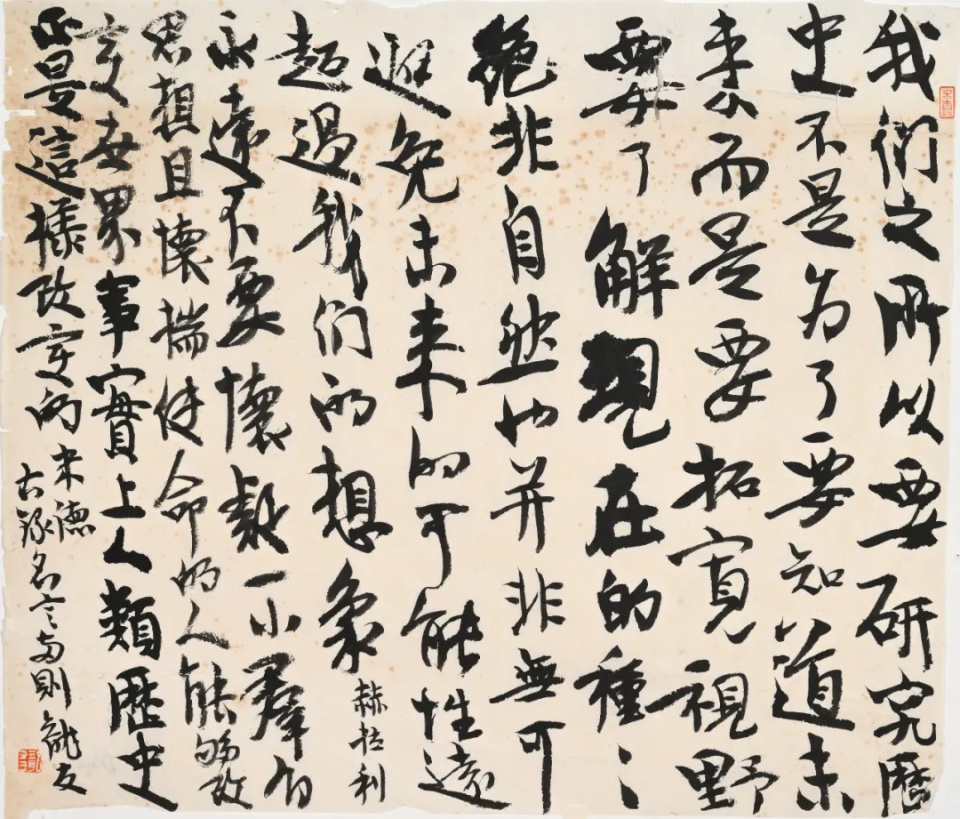 我們之所以要研究歷
史不是为了要知道未
来而是要拓寬視野
要了解現在的種〻
绝非自然也并非無可
避免未来的可能性遠
超過我们的想象
赫拉利
永遠不要懷疑一小羣有
思想且懷揣使命的人能够改
变世界事實上人類歷史
正是這樣改变的
米德
右錄名言两則龍友